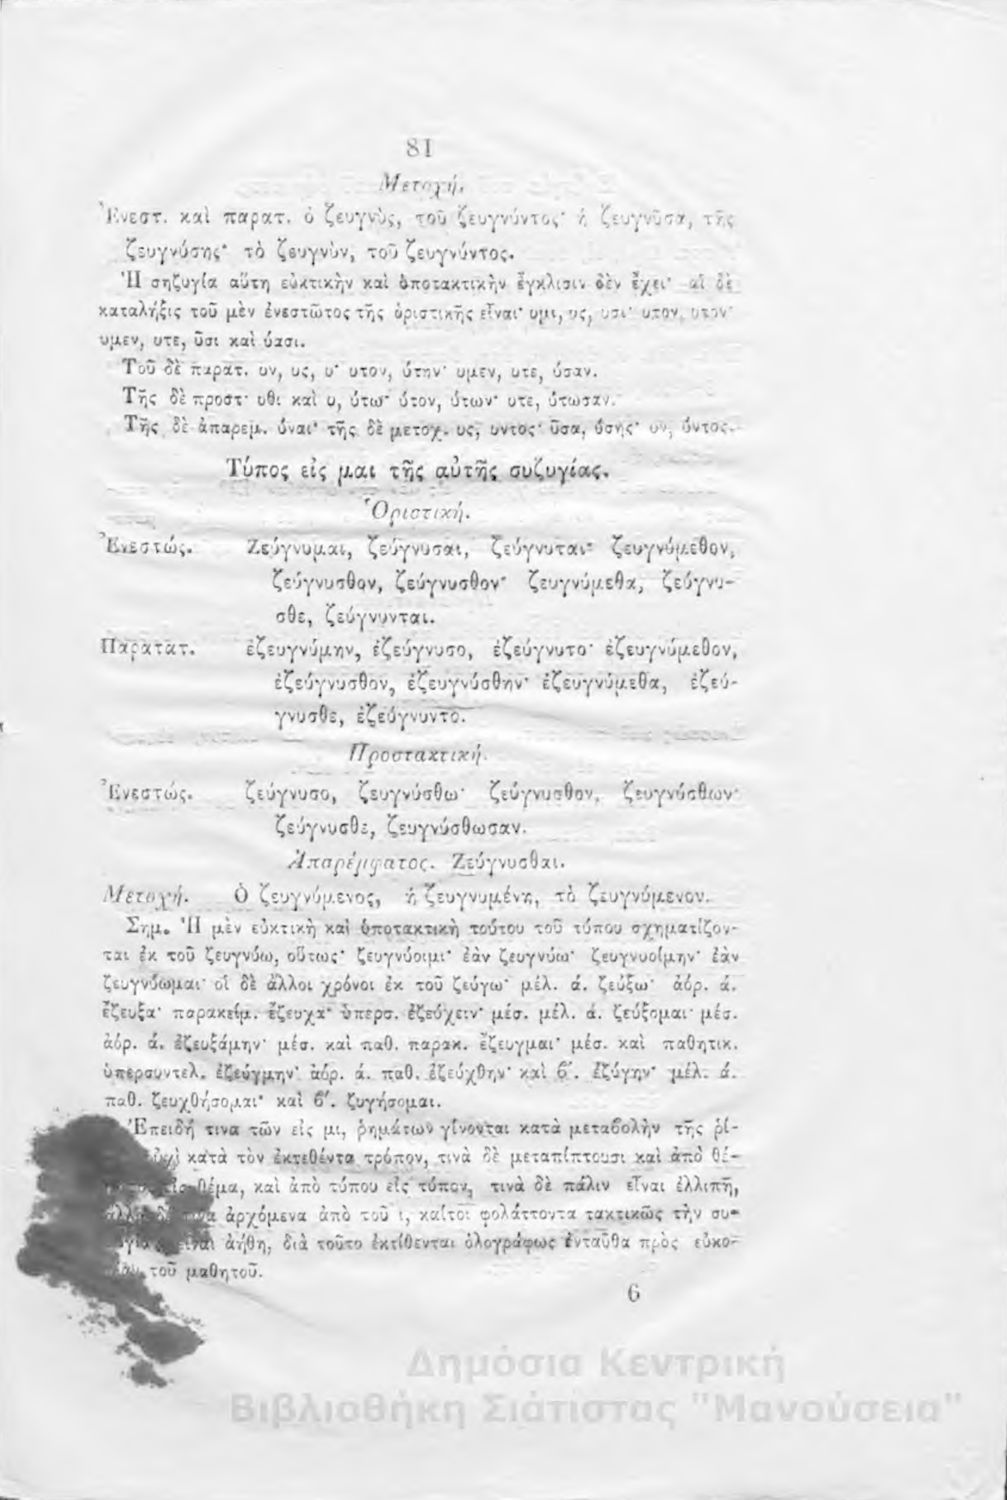 81
Μετοχή.
Ἐνεστ. καὶ παρατ. ὁ ζευγνὺς, τοῦ ζευγνύντος· ἡ ζευγνῦσα, τῆς
ζευγνύσης· τὸ ζευγνὺν, τοῦ ζευγνύντος.
Ἡ συζυγία αὕτη εὐκτικὴν καὶ ὑποτακτικὴν ἔγκλισιν δὲν ἔχει· αἱ δὲ
καταλήξις τοῦ μὲν ἐνεστῶτος τῆς ὁριστικῆς εἶναι· υμι, υς, υσι· υτον, υτον·
υμεν, υτε, ῦσι καὶ ύασι.
Τοῦ δὲ παρατ. υν, υς, υ· υτον, ύτην· υμεν, υτε, ύσαν.
Τῆς δὲ προστ· υθι καὶ υ, ύτω· ύτον, ύτων· υτε, ύτωσαν.
Τῆς δὲ ἀπαρεμ. ύναι· τῆς δὲ μετοχ. υς, υντος· ῦσα, ύσης· υν, ύντος.
Τύπος εἰς μαι τῆς αὐτῆς συζυγίας.
Ὁριστική.
Ἐνεστώς. Ζεύγνυμαι, ζεύγνυσαι, ζεύγνυται· ζευγνύμεθον,
ζεύγνυσθον, ζεύγνυσθον· ζευγνύμεθα, ζεύγνυ-
σθε, ζεύγνυνται.
Παρατατ. ἐζευγνύμην, ἐζεύγνυσο, ἐζεύγνυτο· ἐζευγνύμεθον,
ἐζεύγνυσθον, ἐζευγνύσθην· ἐζευγνύμεθα, ἐζεύ-
γνυσθε, ἐζεύγνυντο.
Προστακτική.
Ἐνεστώς. ζεύγνυσο, ζευγνύσθω· ζεύγνυσθον, ζευγνύσθων·
ζεύγνυσθε, ζευγνύσθωσαν.
Ἀπαρέμφατος. Ζεύγνυσθαι.
Μετοχή. Ὁ ζευγνύμενος, ἡ ζευγνυμένη, τὸ ζευγνύμενον.
Σημ. Ἡ μὲν εὐκτικὴ καὶ ὑποτακτικὴ τούτου τοῦ τύπου σχηματίζον-
ται ἐκ τοῦ ζευγνύω, οὕτως· ζευγνύοιμι· ἐὰν ζευγνύω· ζευγνυοίμην· ἐὰν
ζευγνύωμαι· οἱ δὲ ἄλλοι χρόνοι ἐκ τοῦ ζεύγω· μέλ. ά. ζεύξω· ἀόρ. ά.
ἔζευξα· παρακείμ. ἔζευχα· ὑπερσ. ἐζεύχειν· μέσ. μέλ. ά. ζεύξομαι· μέσ.
ἀόρ. ά. ἐζευξάμην· μέσ. καὶ παθ. παρακ. ἔζευγμαι· μέσ. καὶ παθητικ.
ὑπερσυντελ. ἐζεύγμην· ἀόρ. ά. παθ. ἐζεύχθην· καὶ β΄. ἐζύγην· μέλ. ά.
παθ. ζευχθήσομαι· καὶ β΄. ζυγήσομαι.
Ἐπειδή τινα τῶν εἰς μι, ῥημάτων γίνονται κατὰ μεταβολὴν τῆς ῥί-
κατὰ τὸν ἐκτεθέντα τρόπον, τινὰ δὲ μεταπίπτουσι καὶ ἀπὸ θέ-
εἰς θέμα, καὶ ἀπὸ τύπου εἰς τύπον, τινὰ δὲ πάλιν εἶναι ἐλλιπῆ,
ἀρχόμενα ἀπὸ τοῦ ι, καίτοι φυλάττοντα τακτικῶς τὴν συ-
εἶναι ἀήθη, διὰ τοῦτο ἐκτίθενται ὁλογράφως ἐνταῦθα πρὸς εὐκο-
τοῦ μαθητοῦ.
6
Δημόσια Κεντρική
Βιβλιοθήκη Σιάτιστας "Μανούσεια"